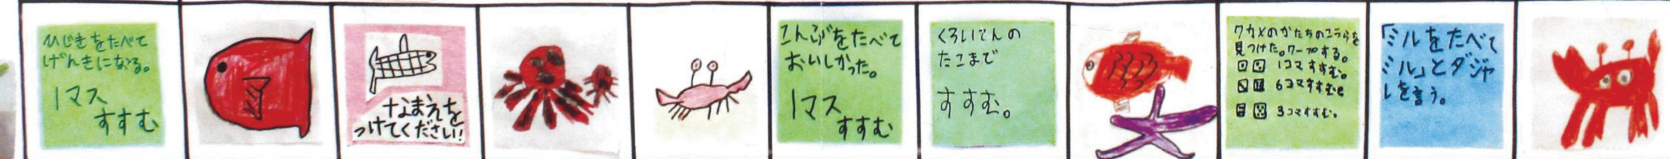 ひじきをたべて
げんきになる。
1マス
すすむ
なまえを
つけてください!
こんぶをたべて
おいしかった。
1マス
すすむ
くろいてんの
たこまで
すすむ。
ワカメのかたちの
見つけた。ワープする。
1コマすすむ。
6コマすすむ
3コマすすむ。
「ミルをたべて
ミル」とダジャ
レを言う。